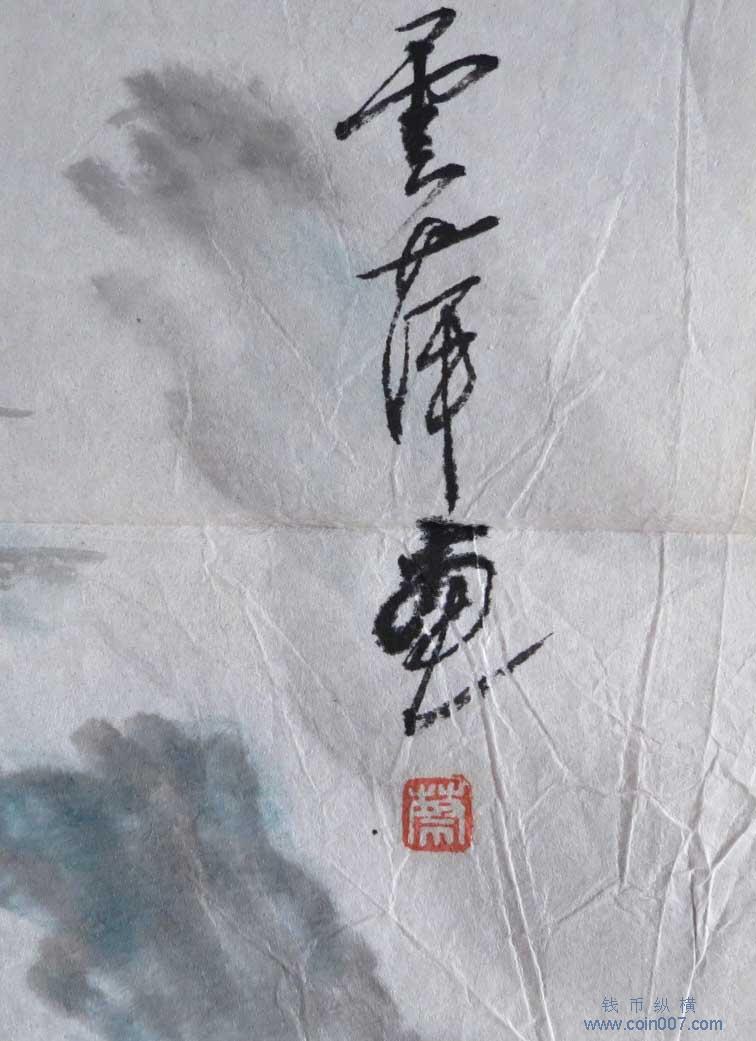 雲
畫
蔡
钱币纵横
www.coin007.com